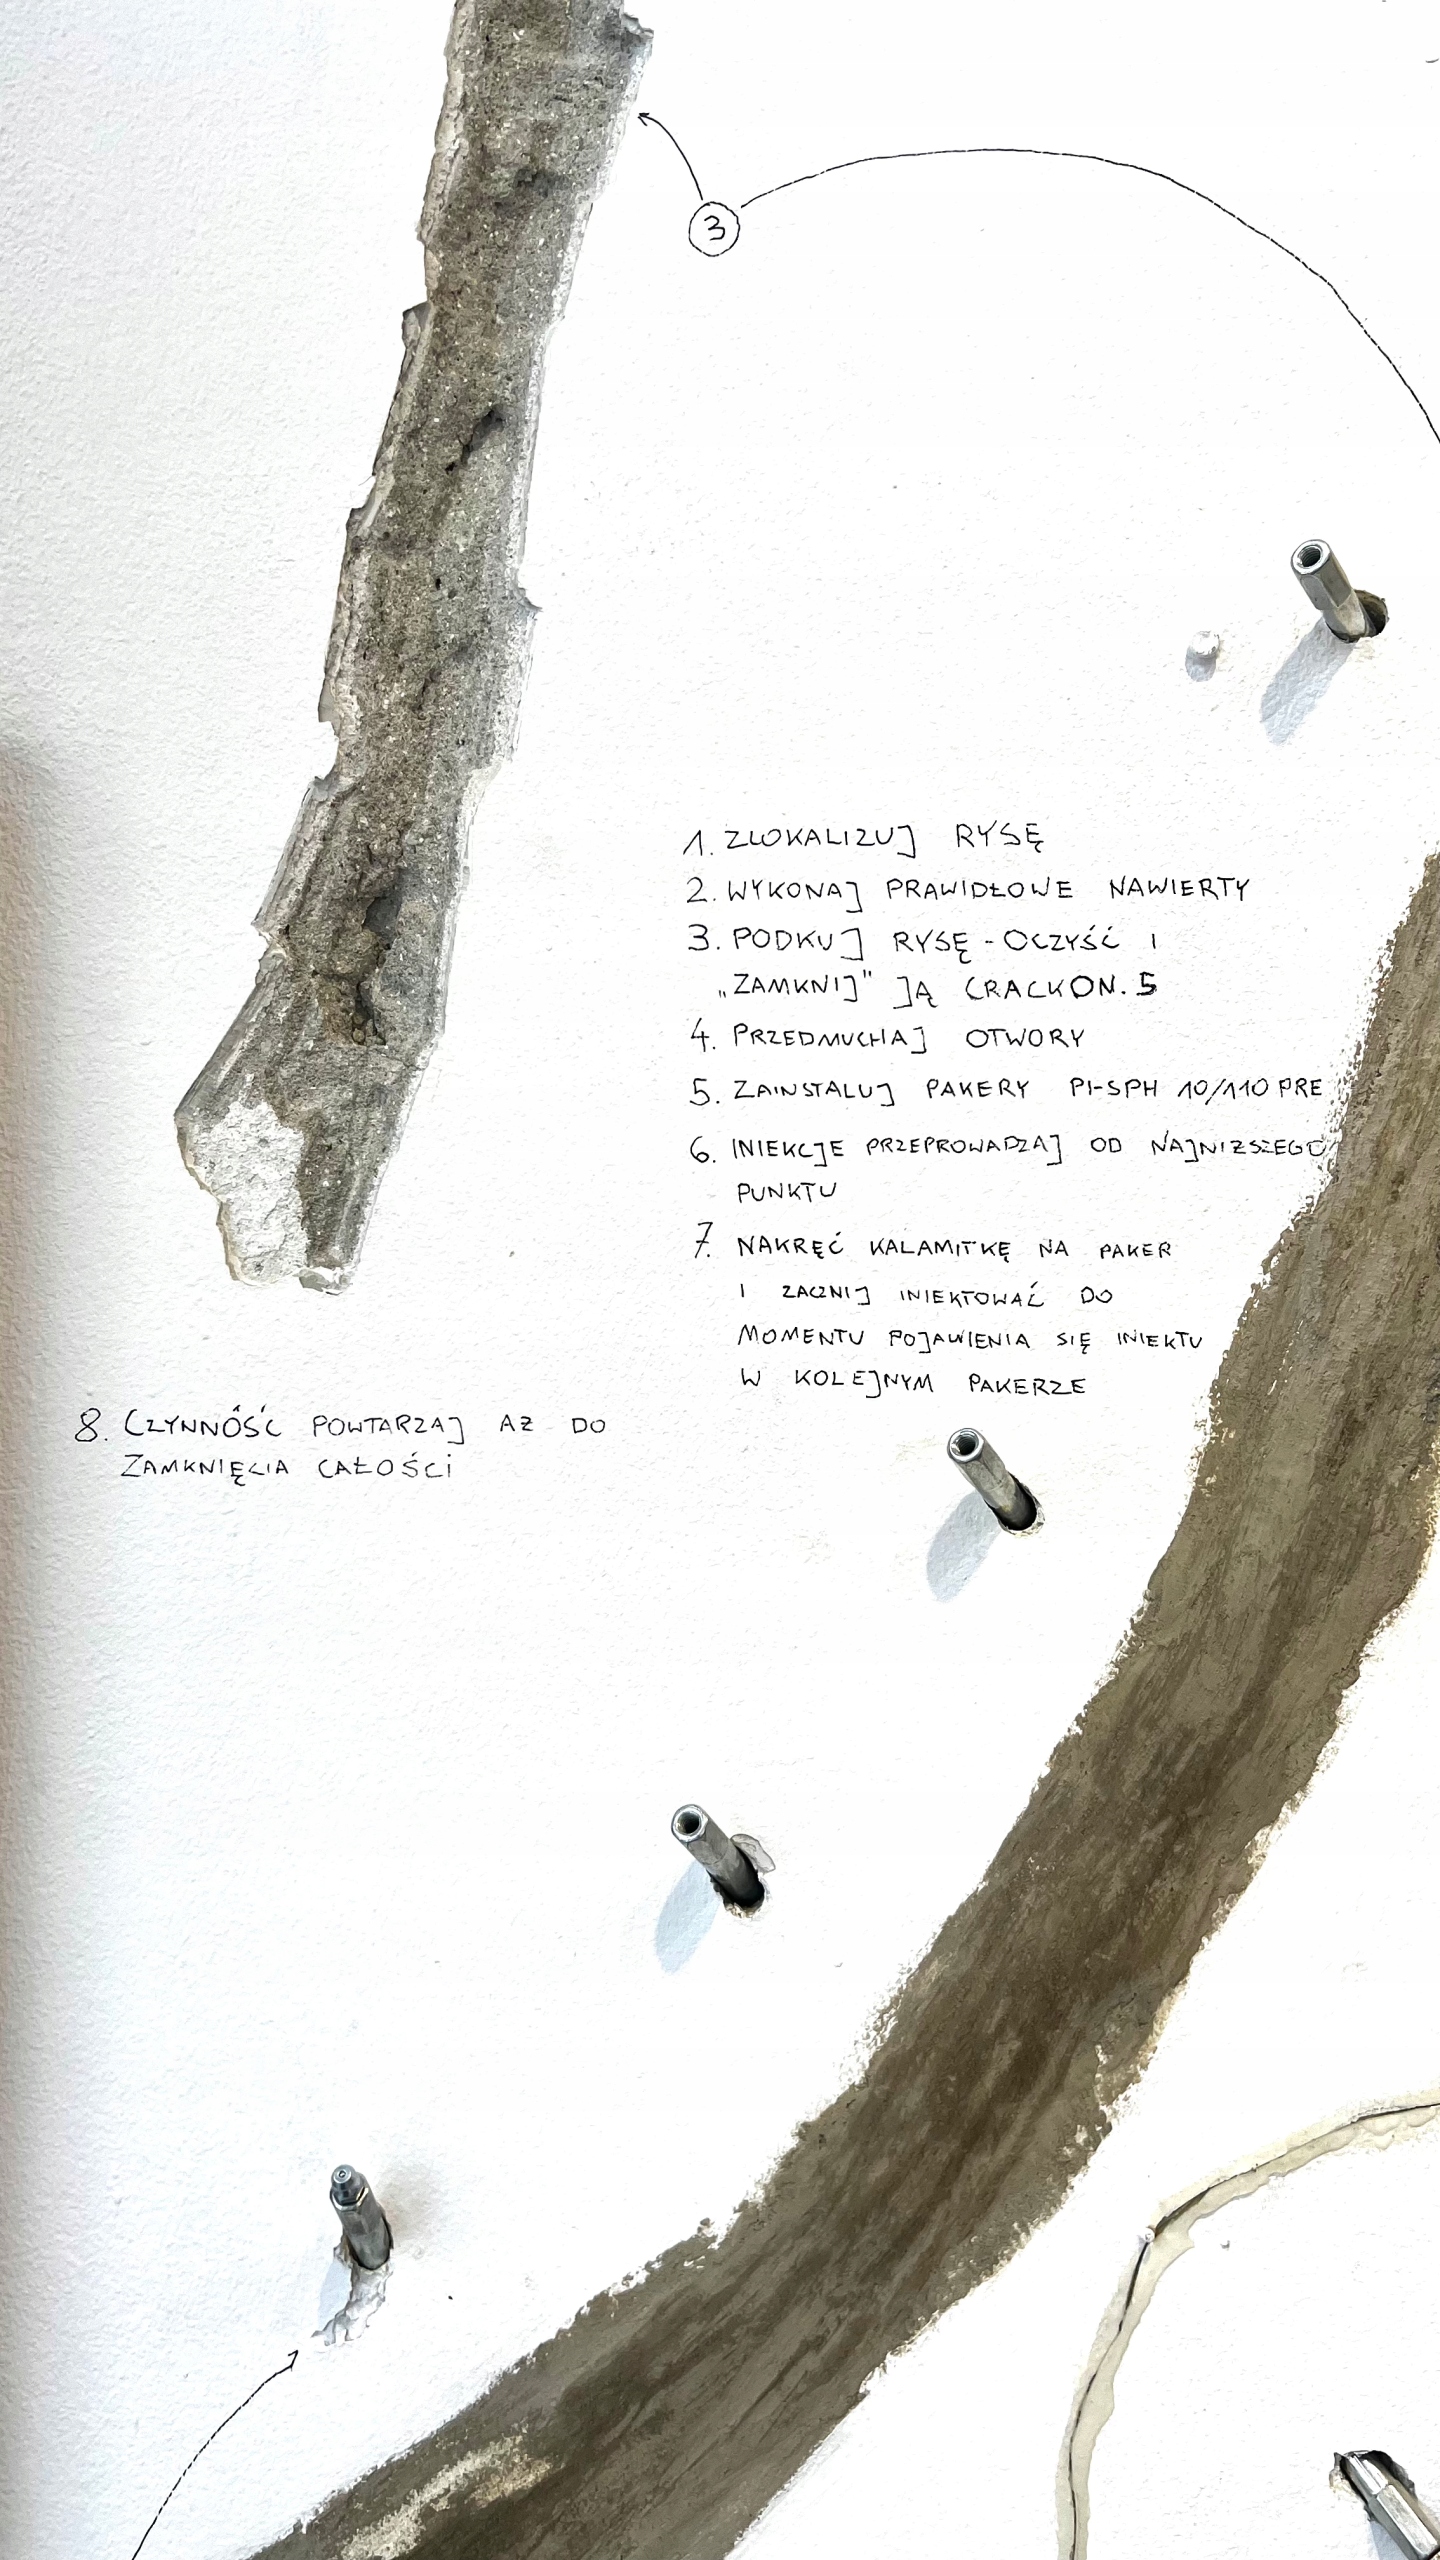 3
1. ZLOKALIZUJ RYSĘ
2. WYKONAJ PRAWIDŁOWE NAWIERTY
3. PODKUJ RYSĘ - OCZYŚĆ I
„ZAMKNIJ" JĄ CRACKON. 5
4. PRZEDMUCHAJ OTWORY
5. ZAINSTALUJ PAKERY PI-SPH 10/110 PRE
6. INIEKCJE PRZEPROWADZAJ OD NAJNIŻSZEGO
PUNKTU
7. NAKRĘĆ KALAMITKĘ NA PAKER
I ZACZNIJ INIEKTOWAĆ DO
MOMENTU POJAWIENIA SIĘ INIEKTU
W KOLEJNYM PAKERZE
8. CZYNNOŚĆ POWTARZAJ AŻ DO
ZAMKNIĘCIA CAŁOŚCI